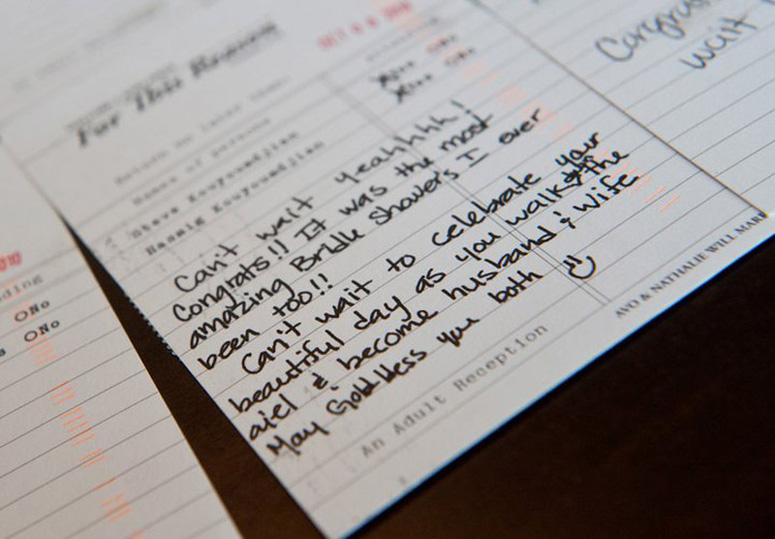 For This Reason
Names of persons
Steve Kouyoumdjian
Hassig Kouyoumdjian
Can't wait yeahhhh!
Congrats!! It was the most
amazing Bridle Showers I ever
been too!!
Can't wait to celebrate your
beautiful day as you walk the
aiel & become husband & wife
May God bless you both
An Adult Reception
AVO & NATHALIE WILL MAR
Congra
wait
ding
ONo
s ONo